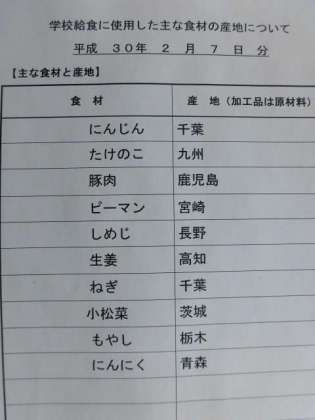 学校給食に使用した主な食材の産地について
平成 30年 2 月 7 日 分
【主な食材と産地】
食 材 産 地（加工品は原材料）
にんじん 千葉
たけのこ 九州
豚肉 鹿児島
ピーマン 宮崎
しめじ 長野
生姜 高知
ねぎ 千葉
小松菜 茨城
もやし 栃木
にんにく 青森